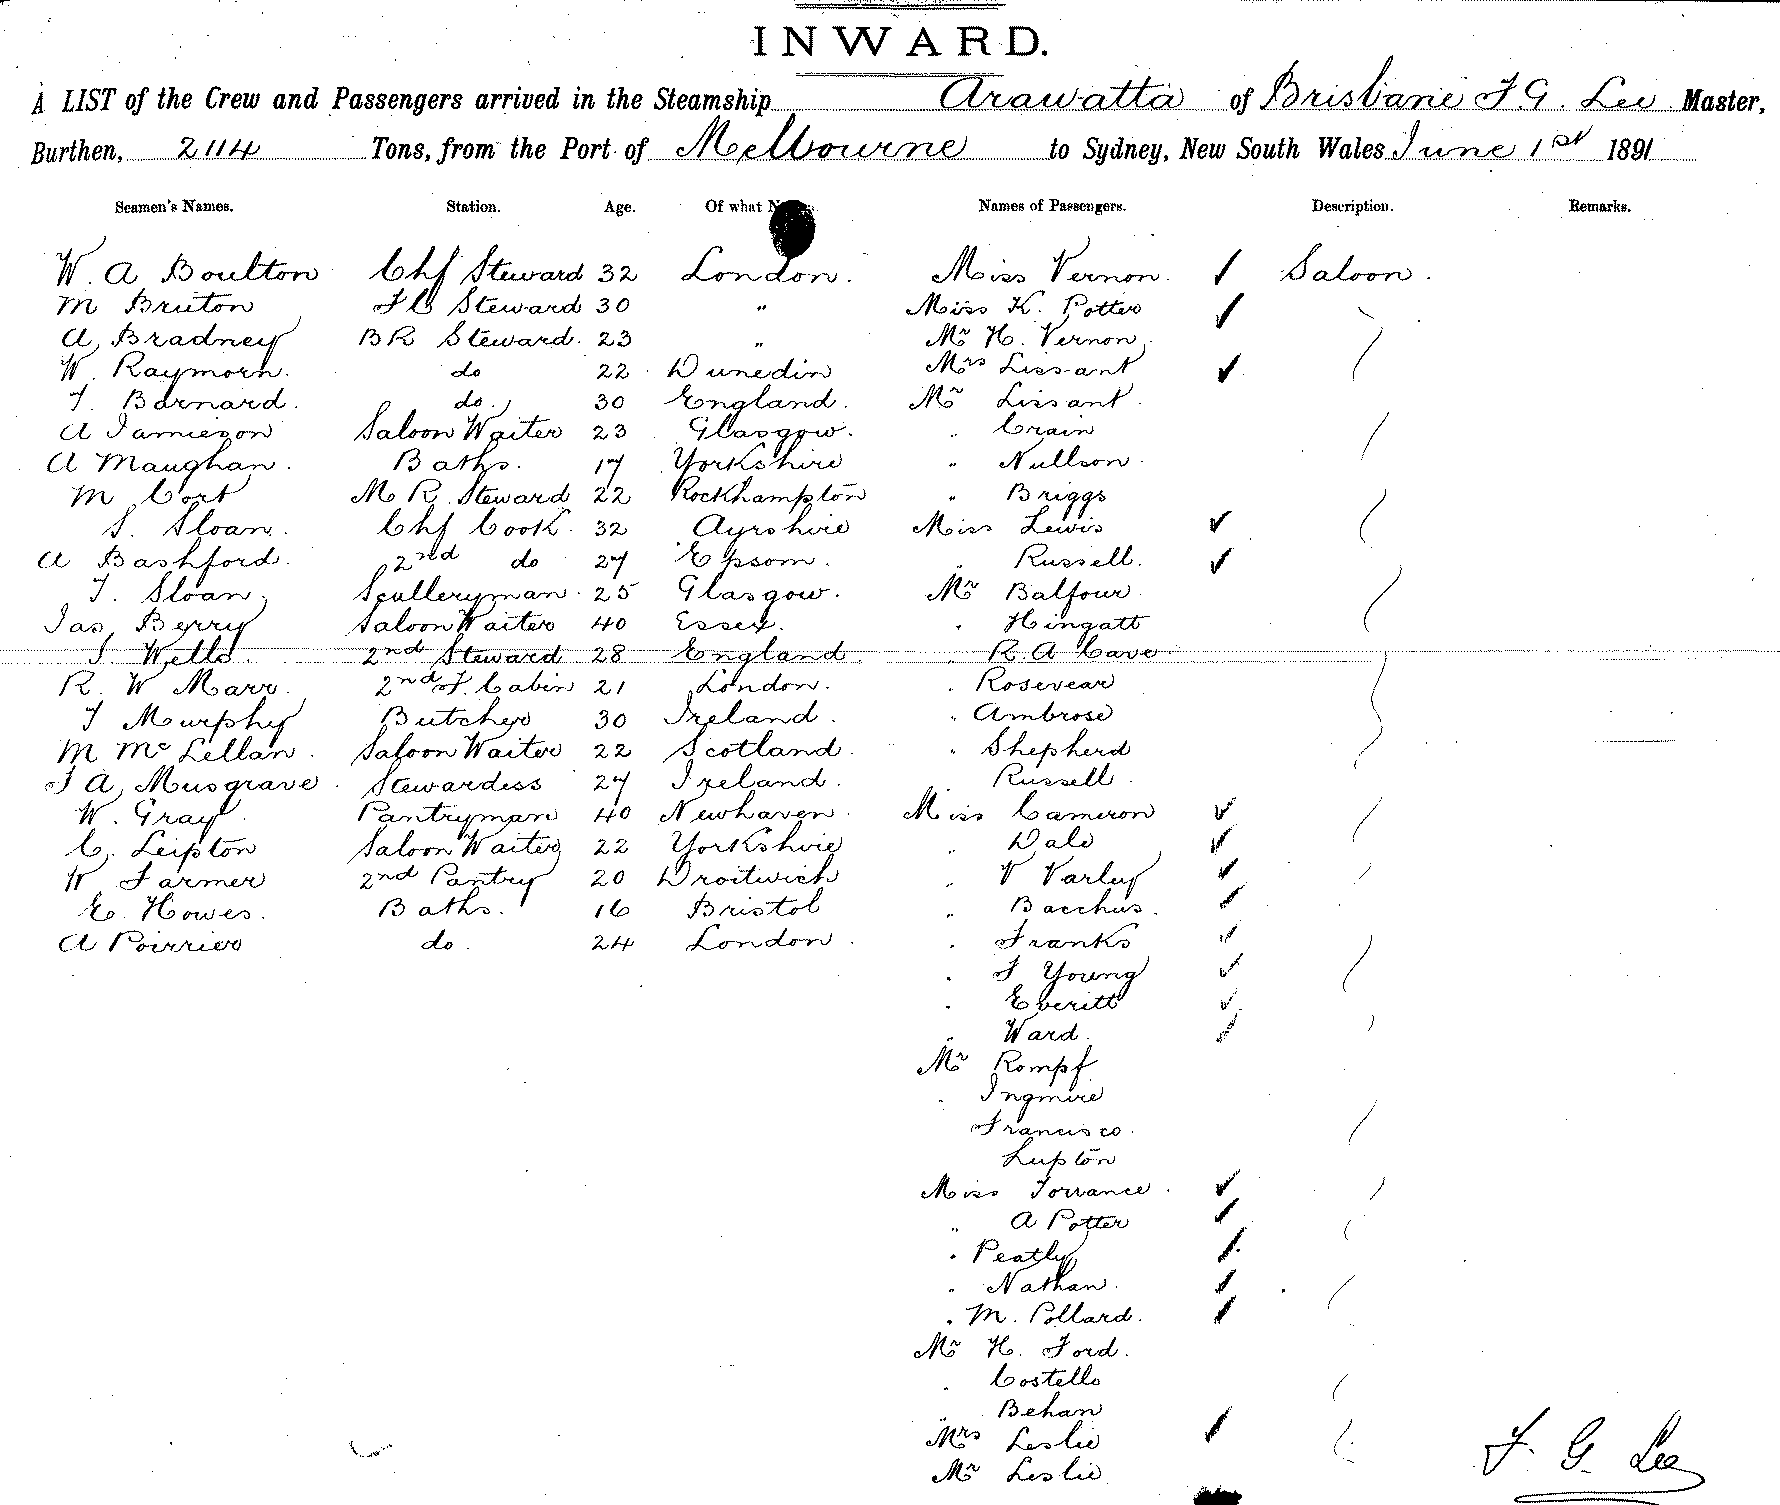 INWARD.
A LIST of the Crew and Passengers arrived in the Steamship Arawatta of Brisbane F G. Lee Master,
Burthen, 2114 Tons, from the Port of Melbourne to Sydney, New South Wales June 1st 1891
Seamen's Names. Station. Age. Of what Names of Passengers. Description. Remarks.
W. A Boulton Chf Steward 32 London. Miss Vernon. Saloon.
M Bruton Steward 30 " Miss K. Potter
A, Bradney BR Steward. 23 " Mr H. Vernon.
W. Raymorn. do 22 Dunedin Mrs Lissant
T. Barnard. do. 30 England. Mr Lissant.
A Jamieson Saloon Waiter 23 Glasgow. " Crain
A Maughan. Baths. 17 Yorkshire " Nullson.
M Cort M R. Steward 22 Rockhampton " Briggs
S. Sloan. Chf Cook. 32 Ayrshire Miss Lewis
A Bashford. 2nd do 27 Epsom. " Russell.
T. Sloan. Sculleryman. 25 Glasgow. Mr Balfour.
Jas, Berry Saloon Waiter 40 Essex. " Hingatt
S Wells. 2nd Steward 28 England. " R. A Cave
R. W Marr. 2nd F. Cabin 21 London. " Rosevear
T Murphy Butcher 30 Ireland. " Ambrose
M McLellan. Saloon Waiter 22 Scotland. " Shepherd
J A, Musgrave. Stewardess 27 Ireland. Russell.
W. Gray. Pantryman 40 Newhaven. Miss Cameron
C. Leipton Saloon Waiter 22 Yorkshire " Dale
W Farmer 2nd Pantry 20 Droitwich " V Varley
E. Howes. Baths. 16 Bristol " Bacchus.
A Poirrier do. 24 London. " Franks
" F Young
" Everitt
" Ward.
Mr Rompf
" Ingmire
Francisco.
Lupton
Miss Torrance.
" A Potter
" Peatly
" Nathan.
" M. Pollard.
Mr H. Ford.
" Costello
" Behan
Mrs Leslie
Mr Leslie
F. G. Lee